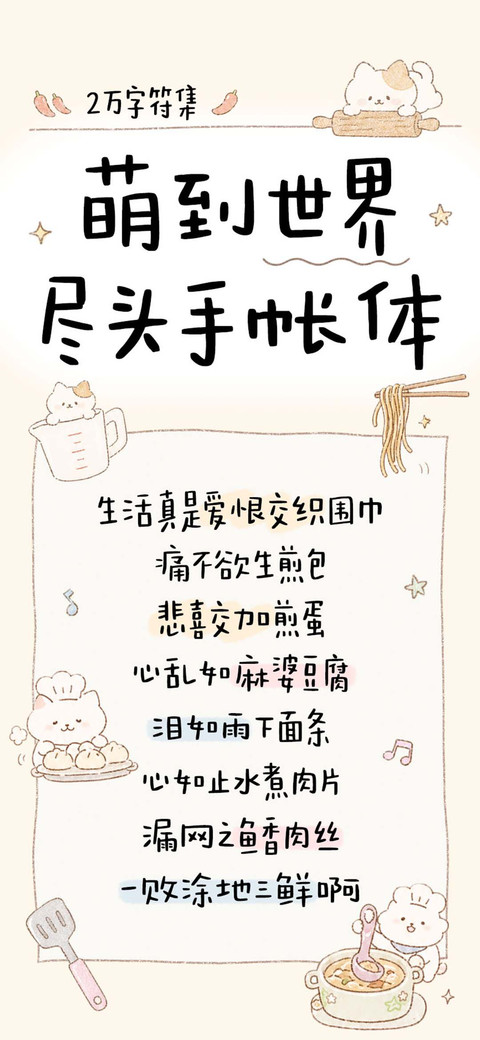 2万字符集
萌到世界
尽头手帐体
生活真是爱恨交织围巾
痛不欲生煎包
悲喜交加煎蛋
心乱如麻婆豆腐
泪如雨下面条
心如止水煮肉片
漏网之鱼香肉丝
一败涂地三鲜啊